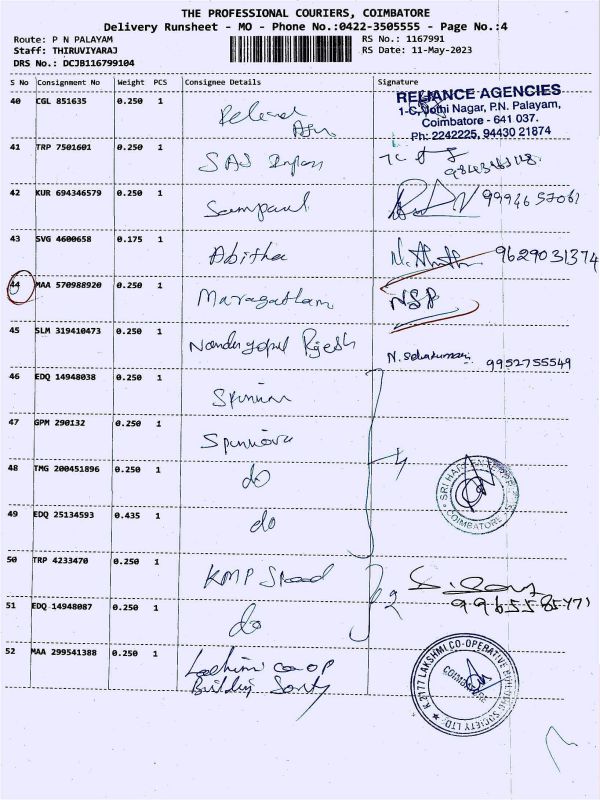 THE PROFESSIONAL COURIERS, COIMBATORE
Delivery Runsheet - MO - Phone No.:0422-3505555 - Page No.:4
Route: P N PALAYAM
RS No.: 1167991
Staff: THIRUVIYARAJ
RS Date: 11-May-2023
DRS No.: DCJB116799104
S No Consignment No Weight PCS Consignee Details Signature
40 CGL 851635 0.250 1 Reliance
RELIANCE AGENCIES
1-C, Jothi Nagar, P.N. Palayam,
Coimbatore - 641 037.
Ph: 2242225, 94430 21874
41 TRP 7501601 0.250 1 SAS
42 KUR 694346579 0.250 1 Sampaul 9994657061
43 SVG 4600658 0.175 1 Abitha 9629031374
44 MAA 570988920 0.250 1 Maragatham NSP
45 SLM 319410473 0.250 1 Nandugopal Rajesh N. Selvakumar 9952755549
46 EDQ 14948038 0.250 1
47 GPM 290132 0.250 1 Spinnova
48 TMG 200451896 0.250 1 do
SRI HARI ENTERPRISES
COIMBATORE
49 EDQ 25134593 0.435 1 do
50 TRP 4233470 0.250 1 KMP
9965585471
51 EDQ 14948087 0.250 1 do
52 MAA 299541388 0.250 1 Lakshmi co-op
Building Society
K.2177 LAKSHMI CO-OPERATIVE BUILDING SOCIETY LTD.
COIMBATORE